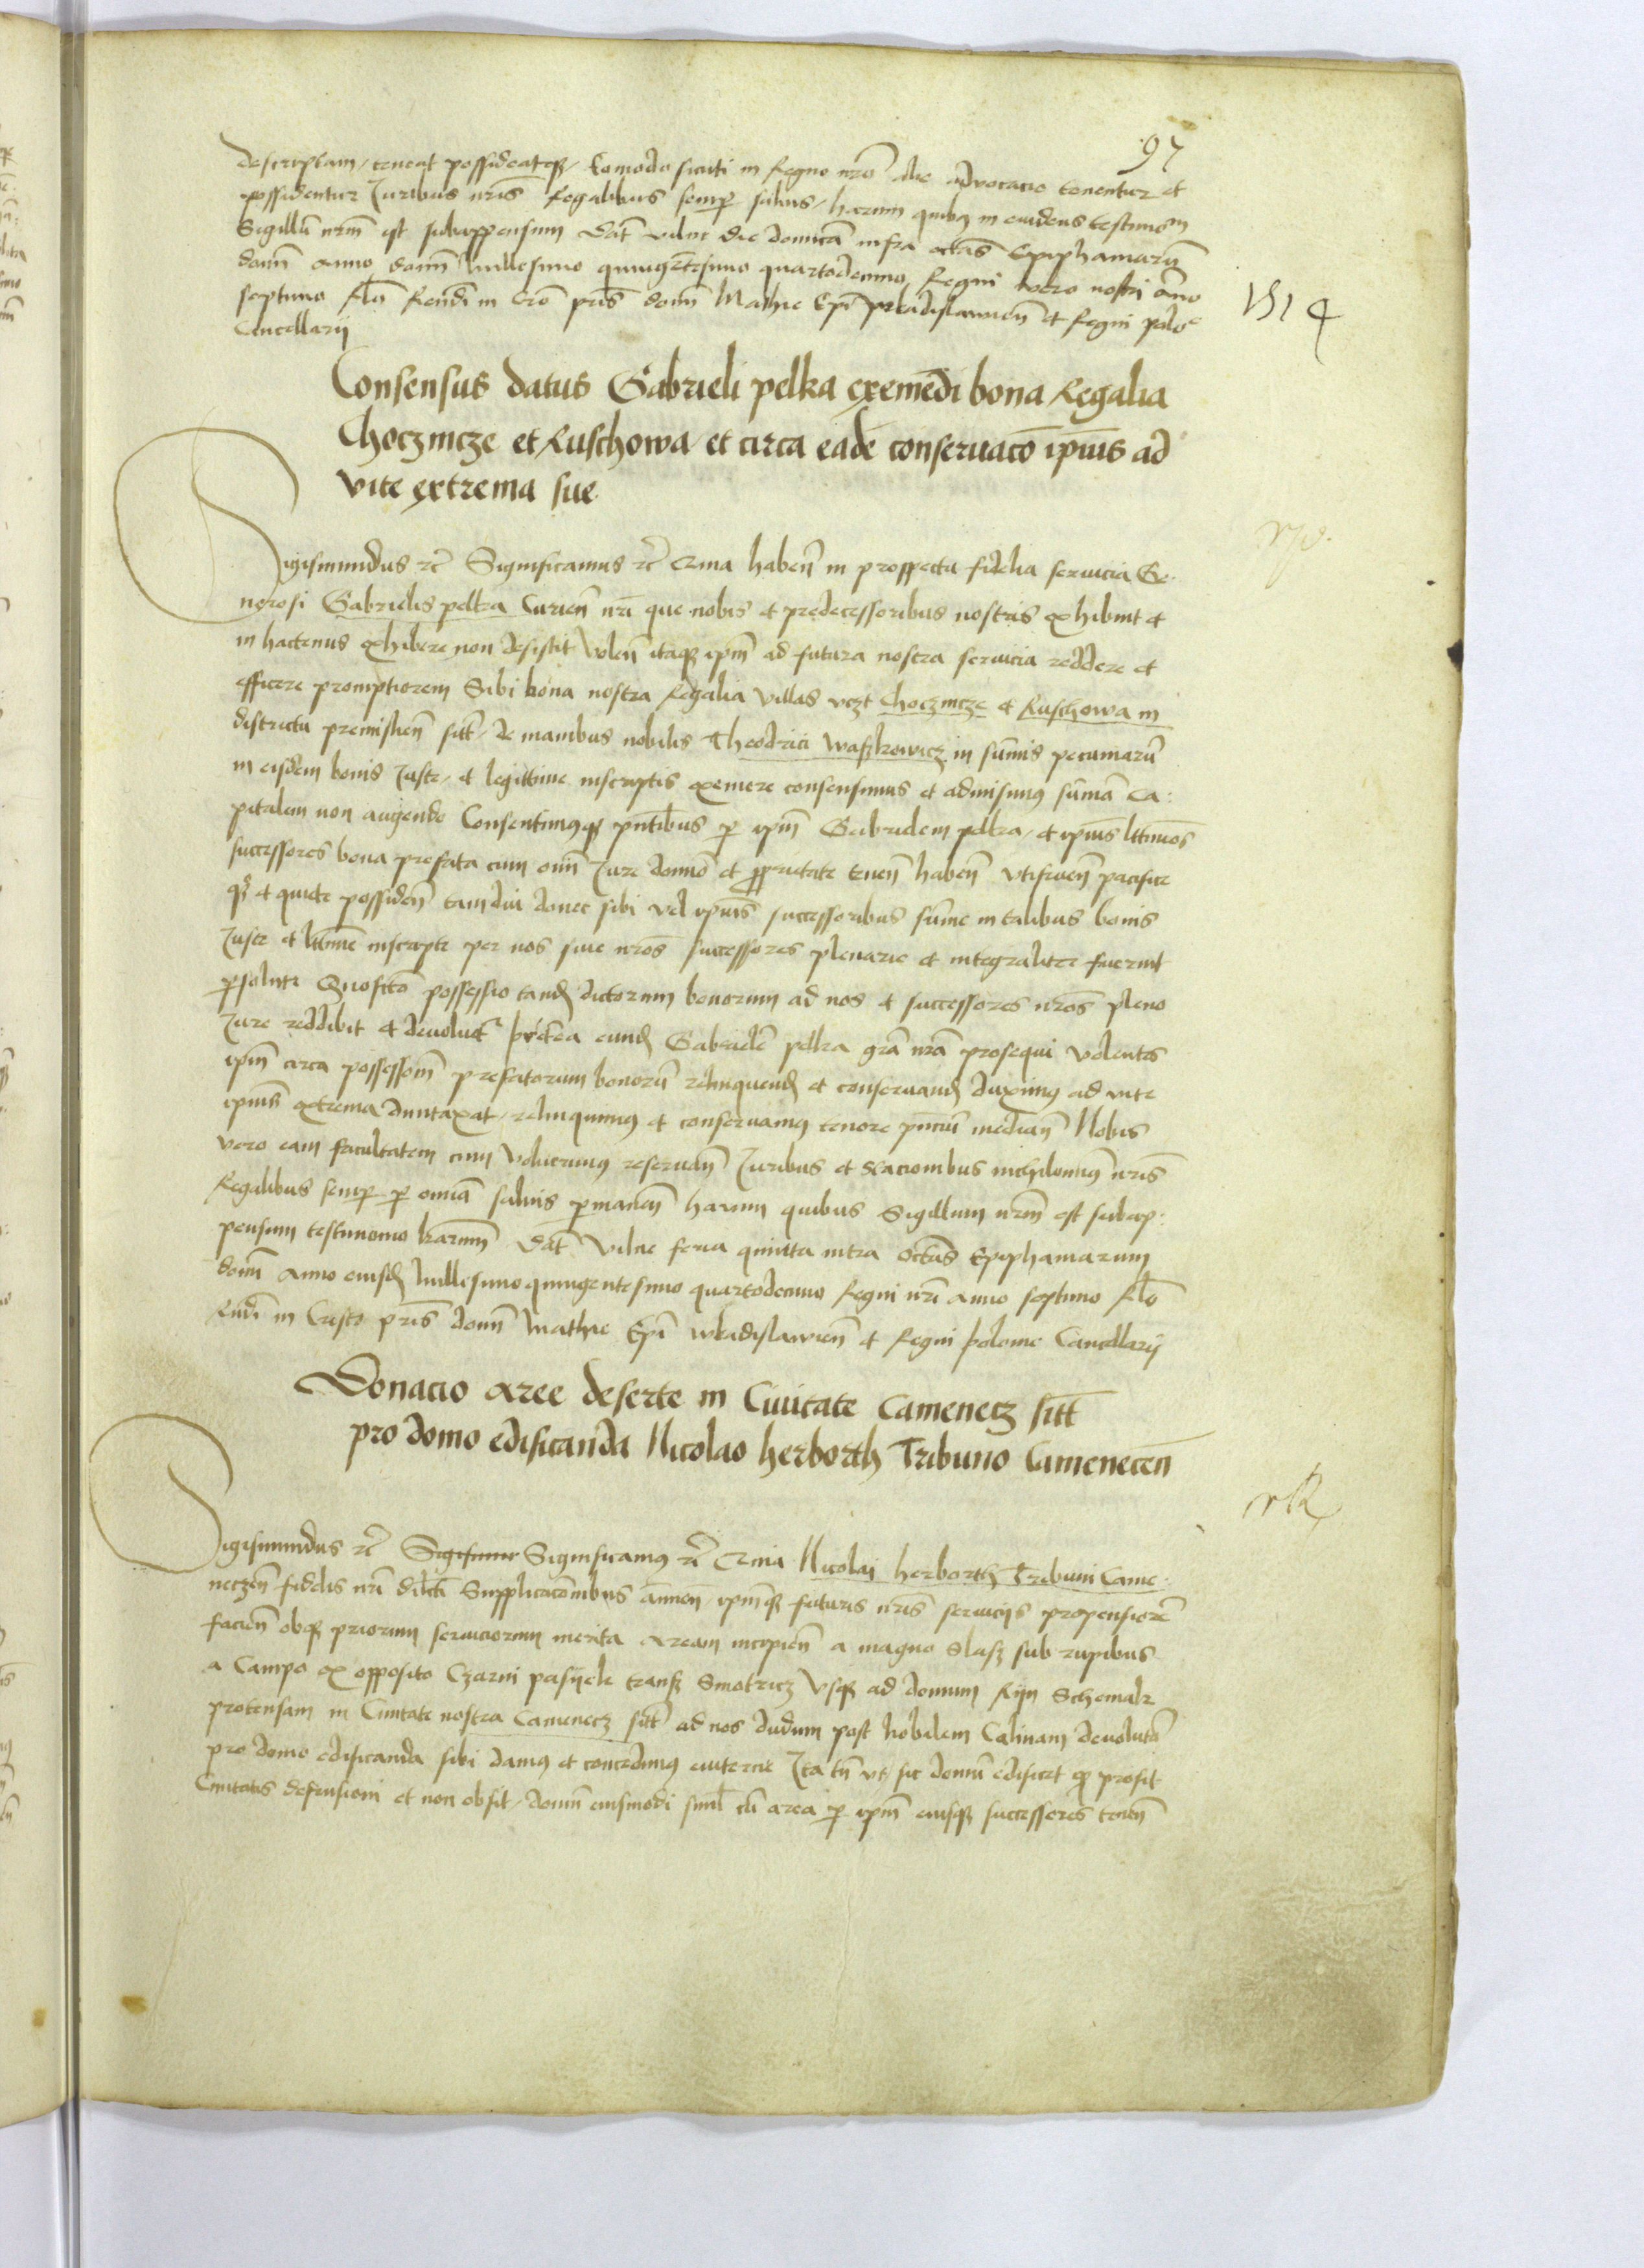 97
descriptam / teneat possideatqz / Eomodo sicuti in Regno nr̄o alie advocacie tenentur et
possidentur Juribus nr̄is Regalibus semp̄ salvis / harum quibus in evidens testimōm
Sigillū nr̄m est subappensum Dat̄ vilne die domīca infra octās Epiphaniarū
domī Anno domī Millesimo quingētesimo quartodecimo Regni vero nostri āno
septimo Rlō Rendi in Crō pris domī Mathie Epī wladislavieñ et Regni polōe
Cancellarij
1514
Consensus datus Gabrieli pelka eximēdi bona Regalia
Choczmcze et Ruschowa / et circa eadē conservacō ipīus ad
vite extrema sue
Sigismundus rc̄ Significamus rc̄ Qma habeñ in prospectu fidelia servicia Ge-
nerosi Gabrielis pelka Curieñ nr̄i que nobis et predecessoribus nostris exhibuit et
in hactenus exhibere non desistit Voleñ itaqz ipm̄ ad futura nostra servicia reddere et
efficere promptiorem Sibi bona nostra Regalia villas vczt Choczmcze et Ruschowa in
districtu premislieñ sitt̄ / de manibus nobilis Theodrici waszkowicz in sūmis pecuniarū
in eisdem bonis Juste / et legittime inscriptis eximere consensimus et admisimus sūmā ca:
pitalem non augendo Consentimusqz pn̄tibus p ipm̄ Gabrielem pelka / et ipīus lt̄timos
successores bona prefata cum omī Jure domīo et ꝓprietate teneñ habeñ vtifrueñ pacifice
qz et quiete possideñ tamdiu donec sibi vel ipīus successoribus sūme in talibus bonis
Juste et lt̄time inscripte per nos sive nr̄os successores plenarie et integraliter fuerint
psolute Quo fcto possessio tandz dictorum bonorum ad nos et successores nr̄os pleno
Jure reddibit et devolvet̄ preterea eundz Gabrielē pelka grā nr̄a prosequi volentes
ipm̄ circa possessiom̄ prefatorum bonorū relinquendz et conservandz duximus ad vite
ipīus extrema duntaxat / relinquimus et conservamus tenore pn̄ciū mediañ Nobis
vero eam facultatem cum voluerimus reservañ Juribus et stacionibus nichilominus nr̄is
Regalibus semp̄ p omīa salvis pmaneñ harum quibus Sigillum nr̄m est subap:
pensum testimonio lrarum Dat̄ Vilne feria quinta intra Octās Epiphaniarum
domī Anno eiusdz Millesimo quingentesimo quartodecimo Regni nr̄i anno septimo Rlō
Rndi in Cristo pris domī Mathie Epī wladislavieñ et Regni polonie Cancellarij
Donacio aree deserte in Civitate Camenecz sitt̄
pro domo edificanda Nicolao herborth Tribuno Cameneceñ
Sigismundus rc̄ Sigismu Significamus rc̄ Qma Nicolai herborth Tribuni Came-
neczeñ fidelis nr̄i dilcti Supplicacōnibus añueñ ipm̄qz futuris nr̄is serviciis propensiorē
facieñ obqz priorum serviciorum merita Aream incipieñ a magno Slusz sub rupibus
a Campo ex opposito Czarni pasijele transz Smotricz Vsqz ad domum Rijn Schemalr
protensam in Civitate nostra Camenecz sitt̄ ad nos dudum post Nobilem Calinam devolutā
pro domo edificanda sibi damus et concedimus eviterne Ita tn̄ vt sic domū edificet qz prosit
Civitatis defensioni et non obsit / domū eiusmodi siml̄ cū area p ipm̄ eiusqz successores teneñ